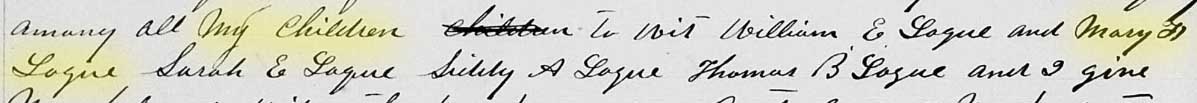 among all My Children children to wit William E Logue and Mary
Logue Sarah E Logue Siddy A Logue Thomas B Logue and I give